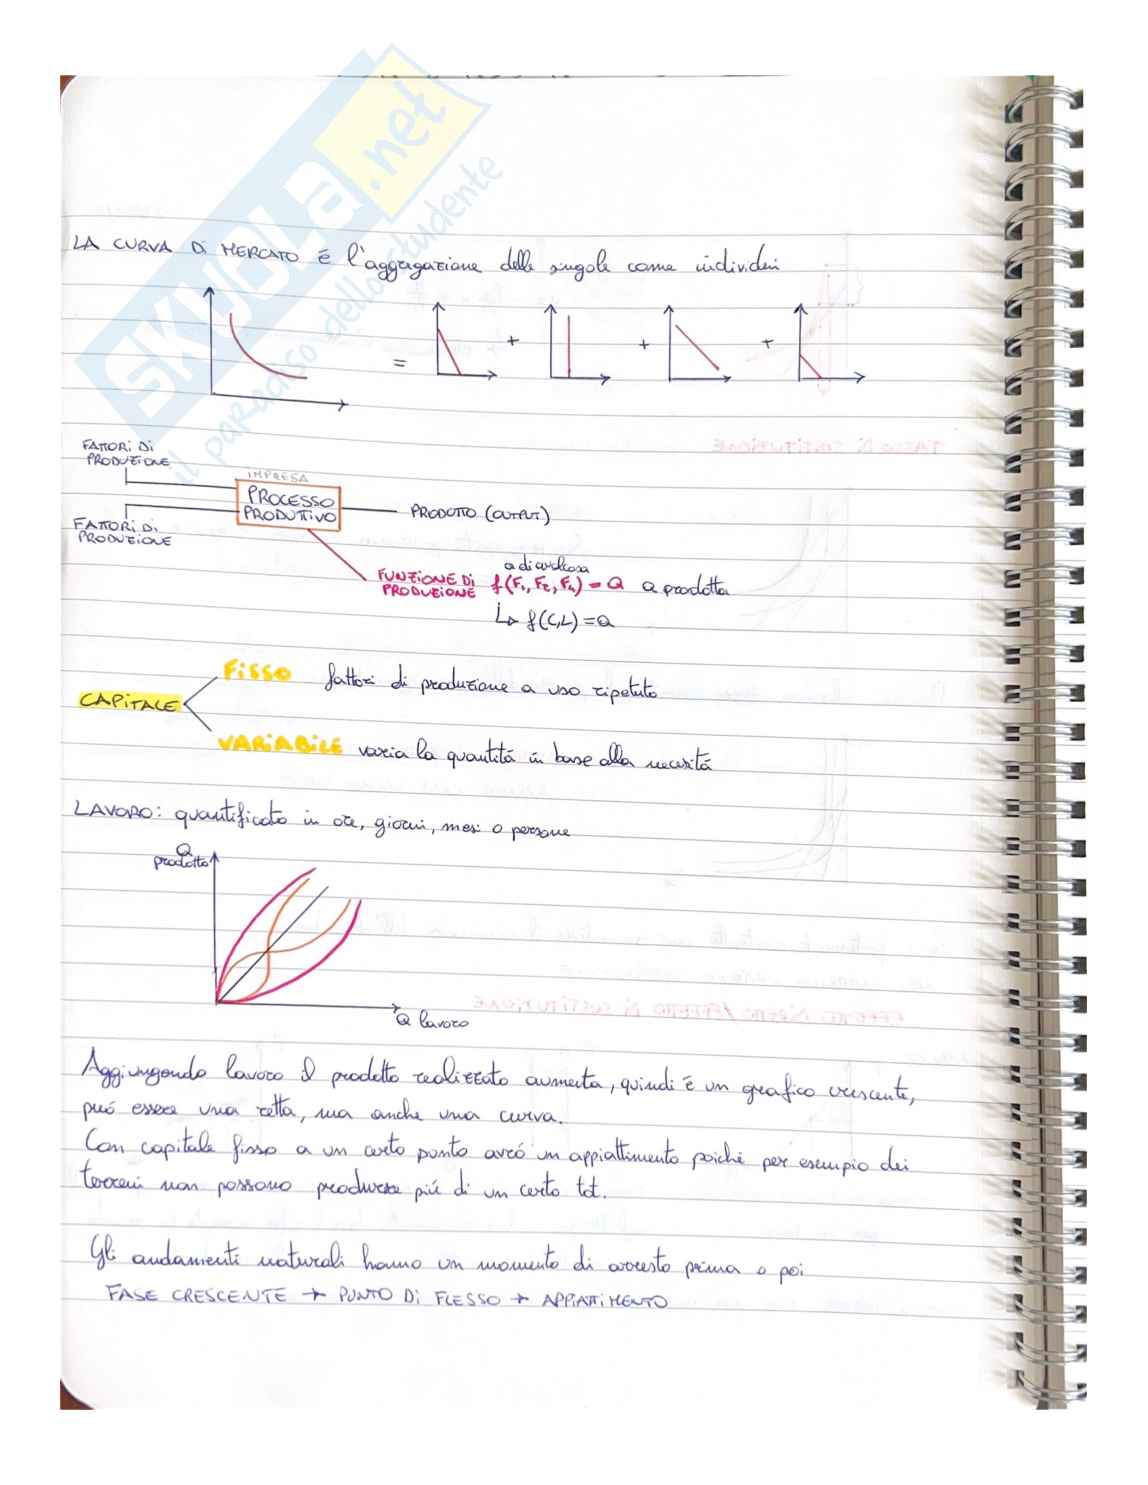 SKUOLA.net
il paradiso dello studente
LA CURVA DI MERCATO è l'aggragazione delle singole come individui
= + + +
FATTORI DI
PRODUZIONE
IMPRESA
PROCESSO
PRODUTTIVO
PRODOTTO (OUTPUT)
FATTORI DI
PRODUZIONE
FUNZIONE DI
PRODUZIONE
f(F₁, F₂, F₄) = Q Q prodotta
↳ f(C,L) = Q
CAPITALE
FISSO fattori di produzione a uso ripetuto
VARIABILE varia la quantità in base alla necessità
LAVORO: quantificato in ore, giorni, mesi o persone
Q
prodotto
Q lavoro
Aggiungendo lavoro il prodotto realizzato aumenta, quindi è un grafico crescente,
può essere una retta, ma anche una curva.
Con capitale fisso a un certo punto avrò un appiattimento poiché per esempio dei
terreni non possono produrre più di un certo tot.
Gli andamenti naturali hanno un momento di arresto prima o poi
FASE CRESCENTE → PUNTO DI FLESSO → APPIATTIMENTO